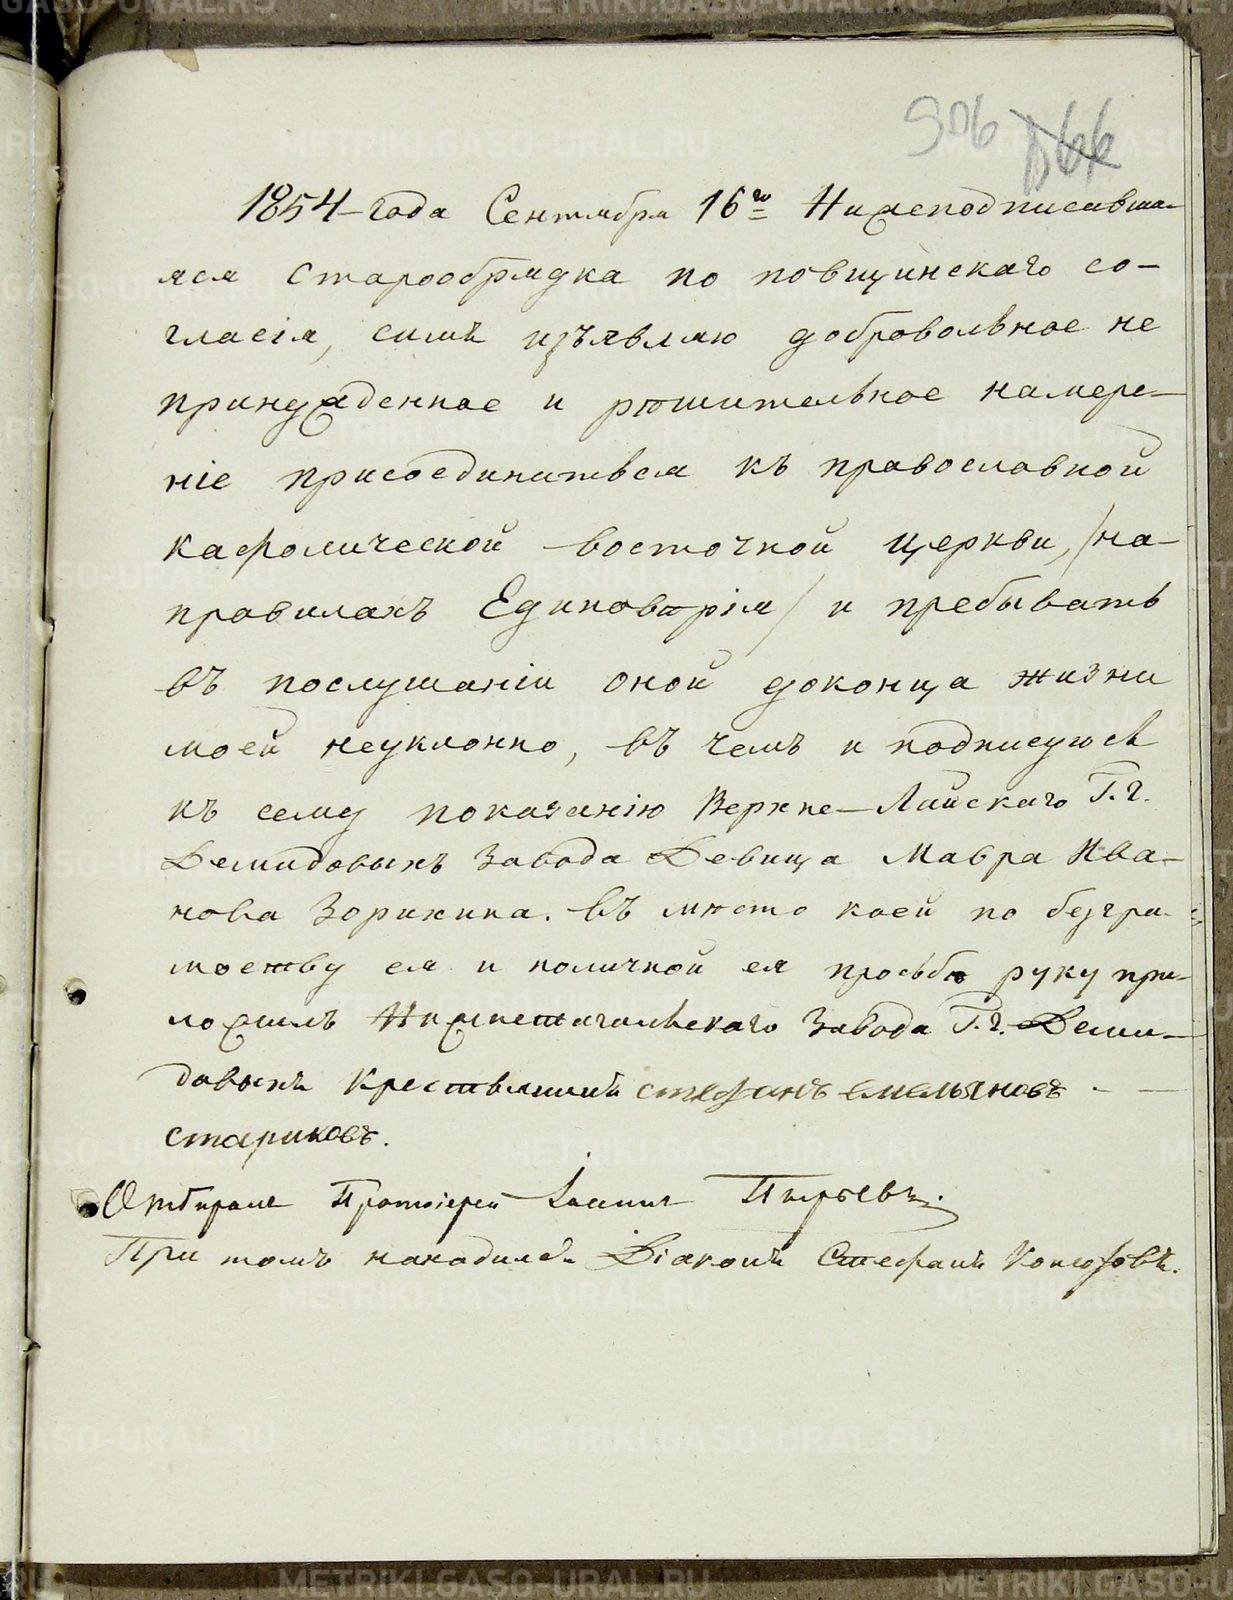 506 166
1854 года Сентября 16го Нижеподписавша-
яся старообрядка по повщинскаго со-
гласія, симъ изъявляю добровольное не
принужденное и рѣшительное намере-
ніе присоединиться къ православной
кафолической восточной церкви, /на-
правилахъ Единовѣрія/ и пребывать
въ послушаніи оной доконца жизни
моей неуклонно, въ чемъ и подписуюсь
къ сему показанію Верхне-Лайскаго Г.г.
Демидовыхъ завода Девица Мавра Ива-
нова Зорихина. въ мѣсто коей по безгра-
мотству ея и поличной ея просьбѣ руку при-
ложилъ Нижнетагильскаго завода Г.г. Деми-
довыхъ крестьянинъ стефанъ емельяновъ
стариковъ.
Отбиралъ Протоіерей Іоаннъ Пырьевъ.
При томъ находился Діаконъ Стефанъ
METRIKI.GASO-URAL.RU